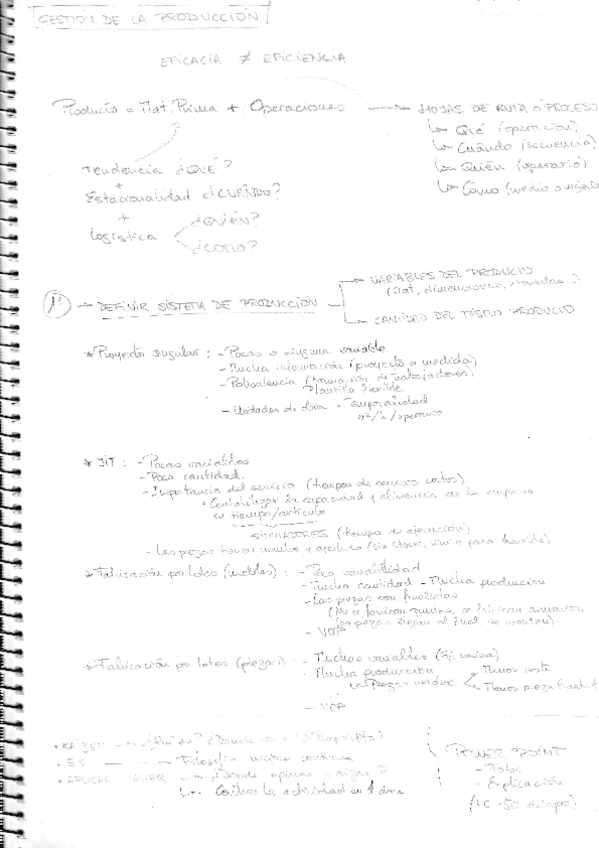 GESTIÓN DE LA PRODUCCIÓN
EFICACIA ≠ EFICIENCIA
Producto = Mat. Prima + Operaciones → HOJAS DE RUTA O PROCESO
Qué (operación)
Cuándo (secuencia)
Quién (operario)
Cómo (medio o máquina
Tendencia ¿QUÉ?
+
Estacionalidad ¿CUÁNDO?
+
Logística
¿QUIÉN?
¿CÓMO?
1º → DEFINIR SISTEMA DE PRODUCCIÓN
VARIABLES DEL PRODUCTO
(Mat, dimensiones,
CANTIDAD DEL MISMO PRODUCTO
* Proyecto singular : - Pocas o ninguna variable
- Mucha información (proyecto a medida)
- Polivalencia
Plantilla flexible
- Unidades de obra - Temporalidad
* JIT : - Pocas variables
- Poca cantidad.
- Importancia del servicio (tiempos de servicio cortos)
* Contabilizar la capacidad y eficiencia de la empresa
su tiempo/artículo
SIMULADORES (tiempo de ejecución)
- Las piezas
* Fabricación por lotes (muebles) : - Poca variabilidad
- Mucha cantidad - Mucha producción
- Las piezas son finalistas
(No se fabrican puntas, se fabrican armarios,
las piezas llegan al final se montan).
- VOP
* Fabricación por lotes (piezas) : - Muchas variables (Ej: cocina)
- Mucha producción
Las Piezas
Menos coste
Menos pieza finalista
- VOP
• KAIZEN → ¿Qué es? ¿Dónde
• ES → Filosofía mejora continua
• APLICAR TALLER → ¿Dónde aplicar Kaizen?
la actividad en 1 área
POWER POINT
- Foto
- Explicación